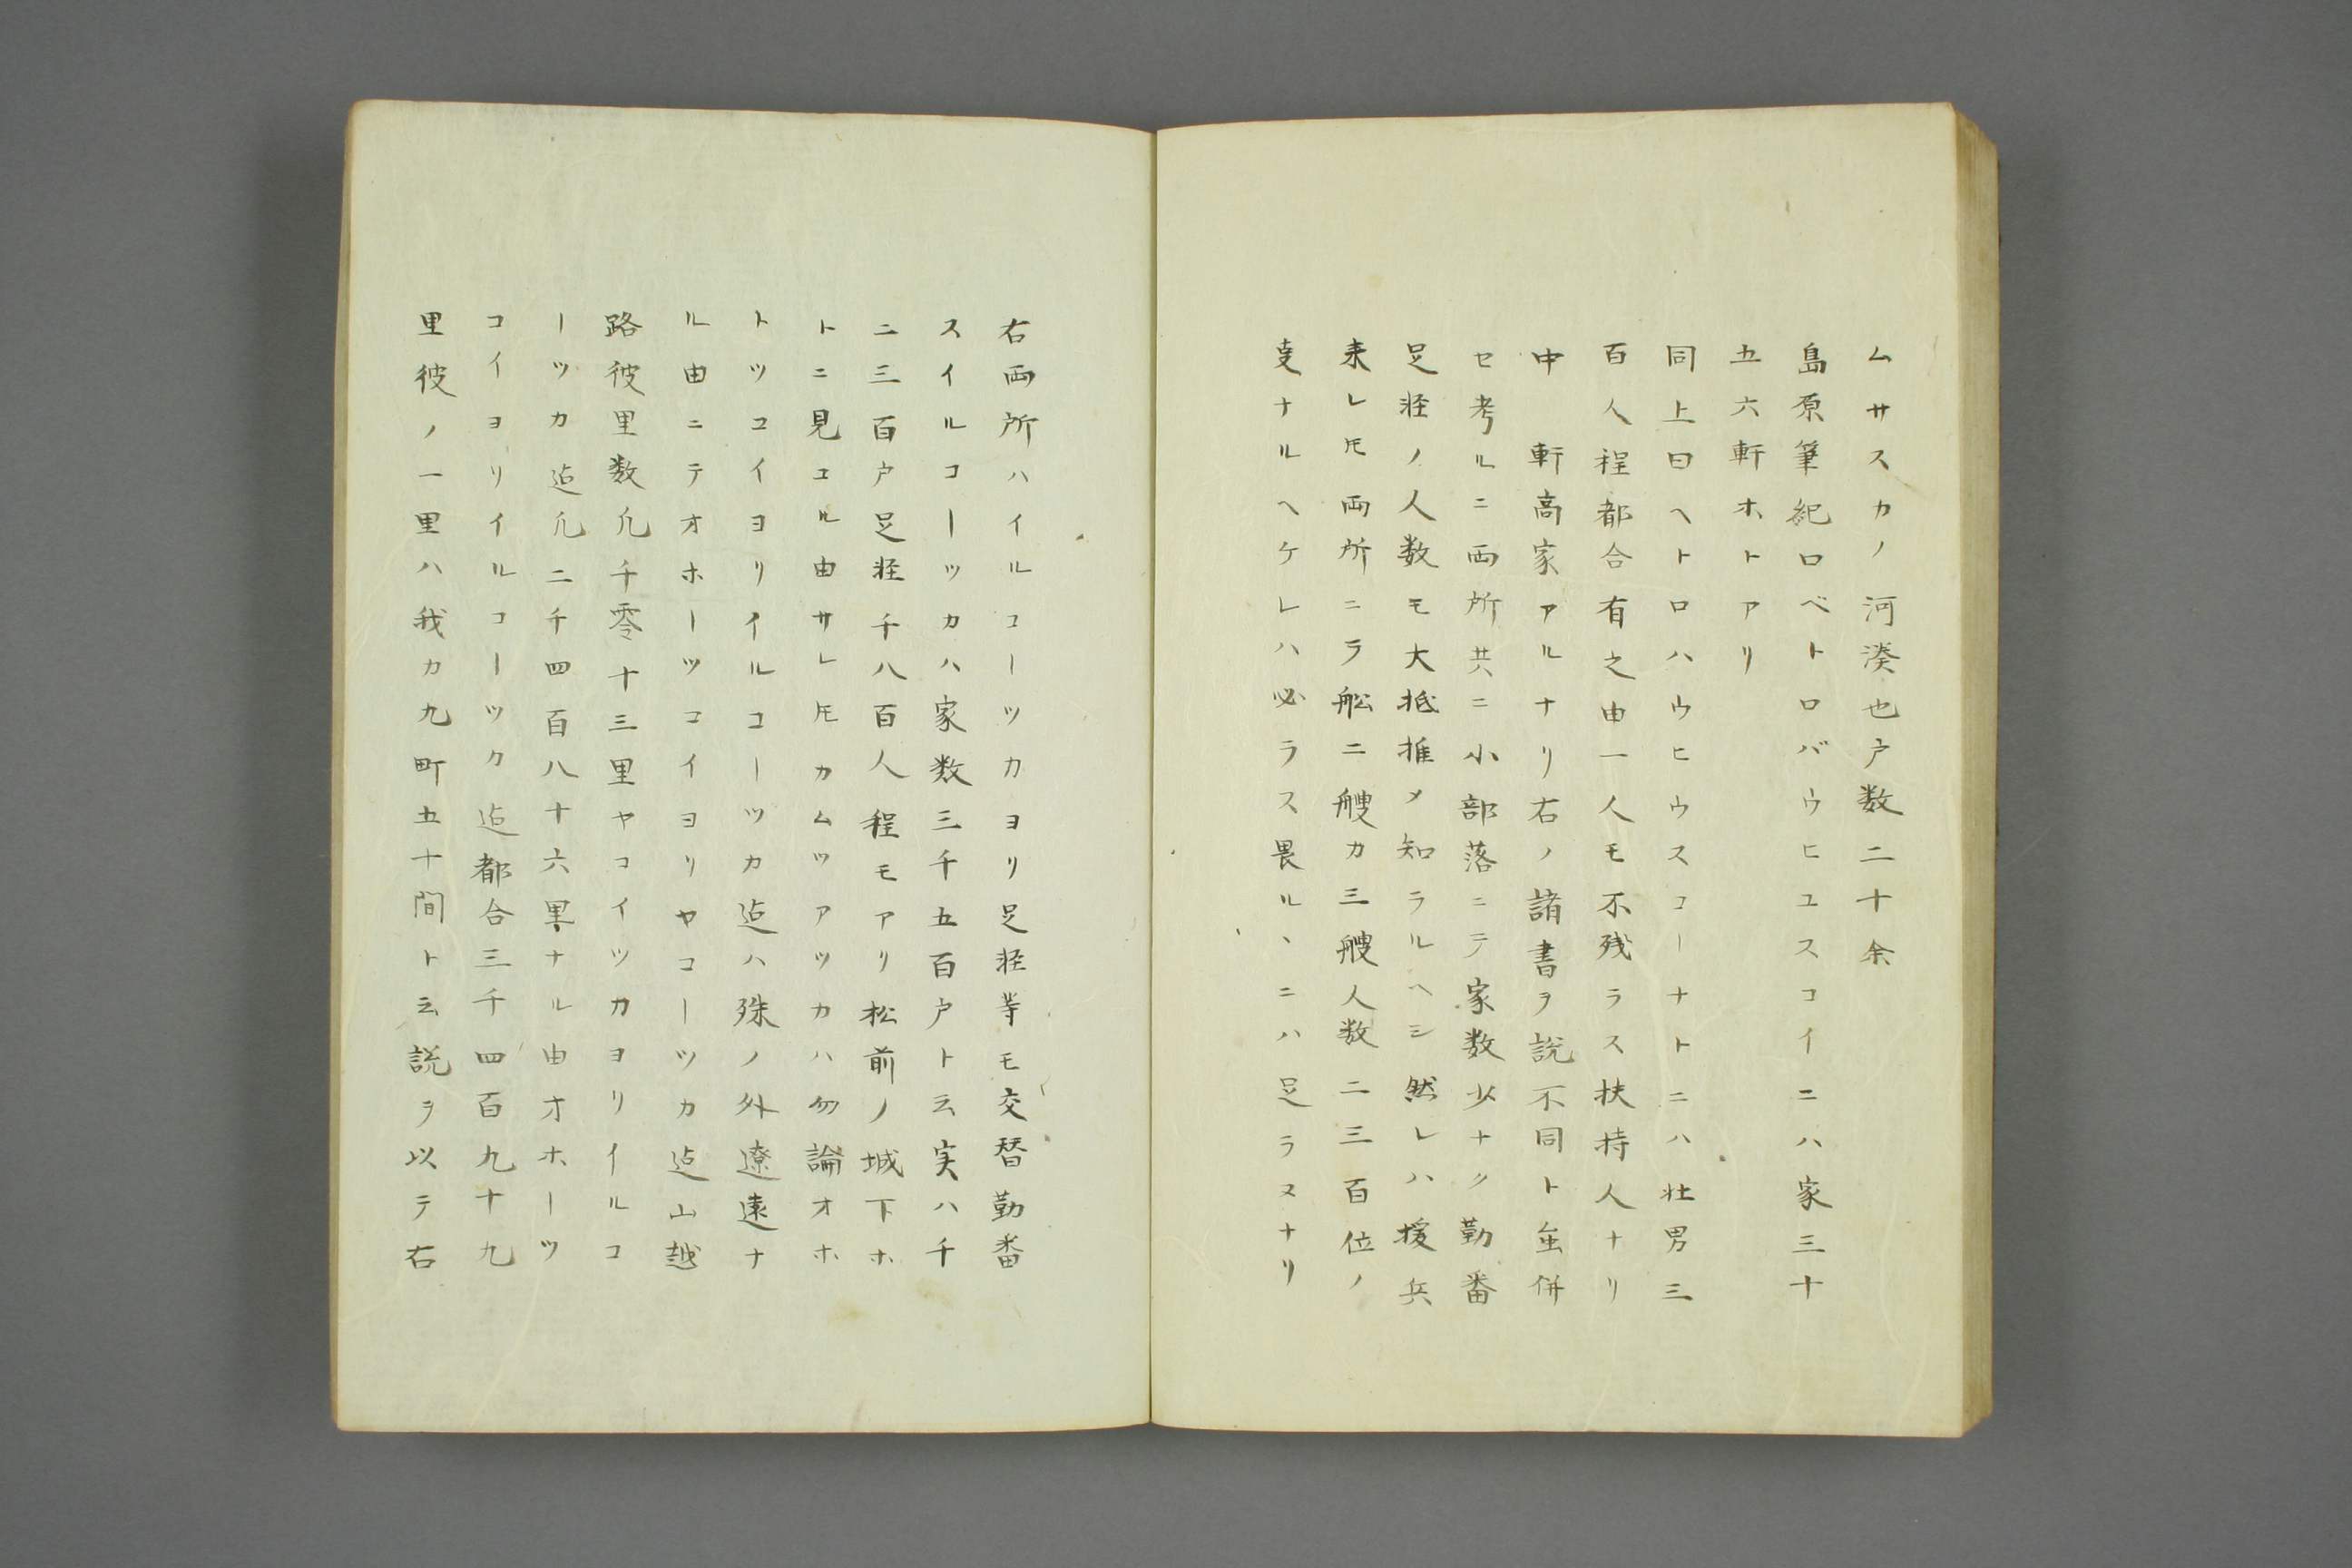 ムサスカノ河湊也戸数二十余
島原筆紀ロペトロバウヒユスコイニハ家三十
五六軒ホトアリ
同上曰ヘトロハウヒウスコーナトニハ壮男三
百人程都合有之由一人モ不残ラス扶持人ナリ
中 軒高家アルナリ右ノ諸書ヲ説不同ト虽併
セ考ルニ両所共ニ小部落ニテ家数少ナク勤番
足軽ノ人数モ大抵推メ知ラルヘシ然レハ援兵
来レ𪜈両所ニテ舩二艘カ三艘人数二三百位ノ
叓ナルヘケレハ必ラス畏ルヽニハ足ラヌナリ
右両所ハイルコーツカヨリ足軽等モ交替勤番
スイルコーツカハ家数三千五百戸ト云実ハ千
二三百戸足軽千八百人程モアリ松前ノ城下ホ
トニ見ユル由サレ𪜈カムツアツカハ勿論オホ
トツコイヨリイルコーツカ迠ハ殊ノ外遼遠ナ
ル由ニテオホーツコイヨリヤコーツカ迠山越
路彼里数凢千零十三里ヤコイツカヨリイルコ
ーツカ迠凢二千四百八十六里ナル由オホーツ
コイヨリイルコーツカ迠都合三千四百九十九
里彼ノ一里ハ我カ九町五十間ト云説ヲ以テ右